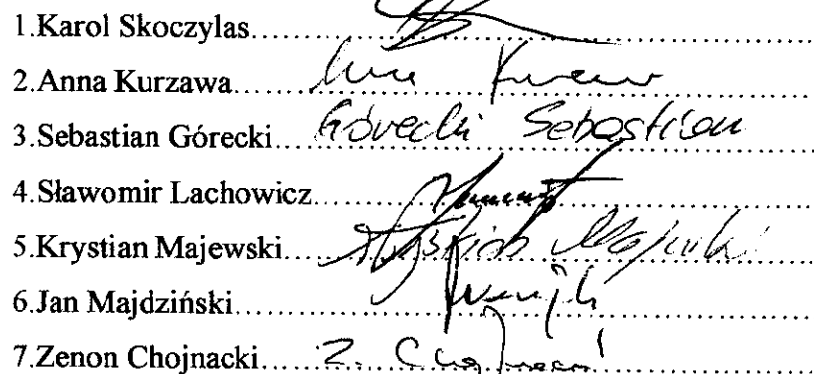 1.Karol Skoczylas
2.Anna Kurzawa
3.Sebastian Górecki Górecki Sebastian
4.Sławomir Lachowicz
5.Krystian Majewski Krystian Majewski
6.Jan Majdziński
7.Zenon Chojnacki Z. Chojnacki